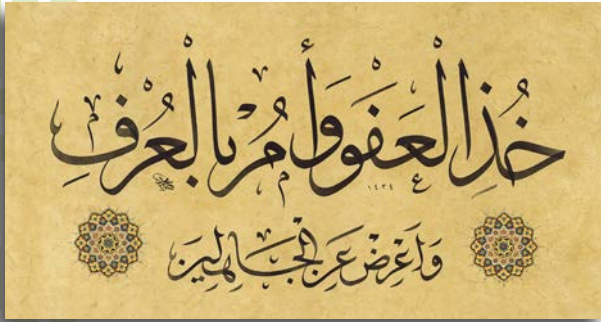 خُذِ الْعَفْوَ وَأْمُرْ بِالْعُرْفِ
١٤٣٤
وَأَعْرِضْ عَنِ الْجَاهِلِينَ